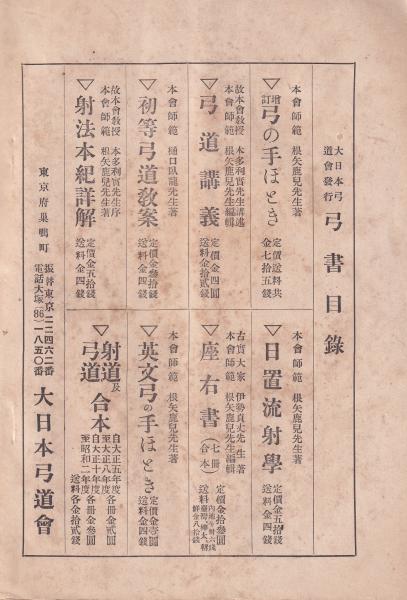 大日本弓道會發行
弓書目錄
本會師範　根矢鹿兒先生著
▽增訂弓の手ほどき　定價送料共金七拾五錢
故本會教授　本多利實先生講述
本會師範　根矢鹿兒先生編輯
▽弓道講義　定價金四圓　送料金貳拾錢
本會師範　樋口臥龍先生著
▽初等弓道教案　定價金參拾錢　送料金四錢
故本會教授　本多利實先生序
本會師範　根矢鹿兒先生著
▽射法本紀詳解　定價金五拾錢　送料金四錢
本會師範　根矢鹿兒先生著
▽日置流射學　定價金五拾錢　送料金四錢
古實大家　伊勢貞丈先生著
本會師範　根矢鹿兒先生編輯
▽座右書（七冊合本）　定價金拾參圓
本會師範　根矢鹿兒先生著
▽英文弓の手ほどき　定價金壹圓　送料金四錢
▽射道及弓道合本　自大正五年度至大正八年度各冊金貳圓　自大正十年度至昭和二年度各冊金參圓　送料各金拾貳錢
東京府巢鴨町　振替東京二二四六二番　電話大塚(86)一八五〇番　大日本弓道會